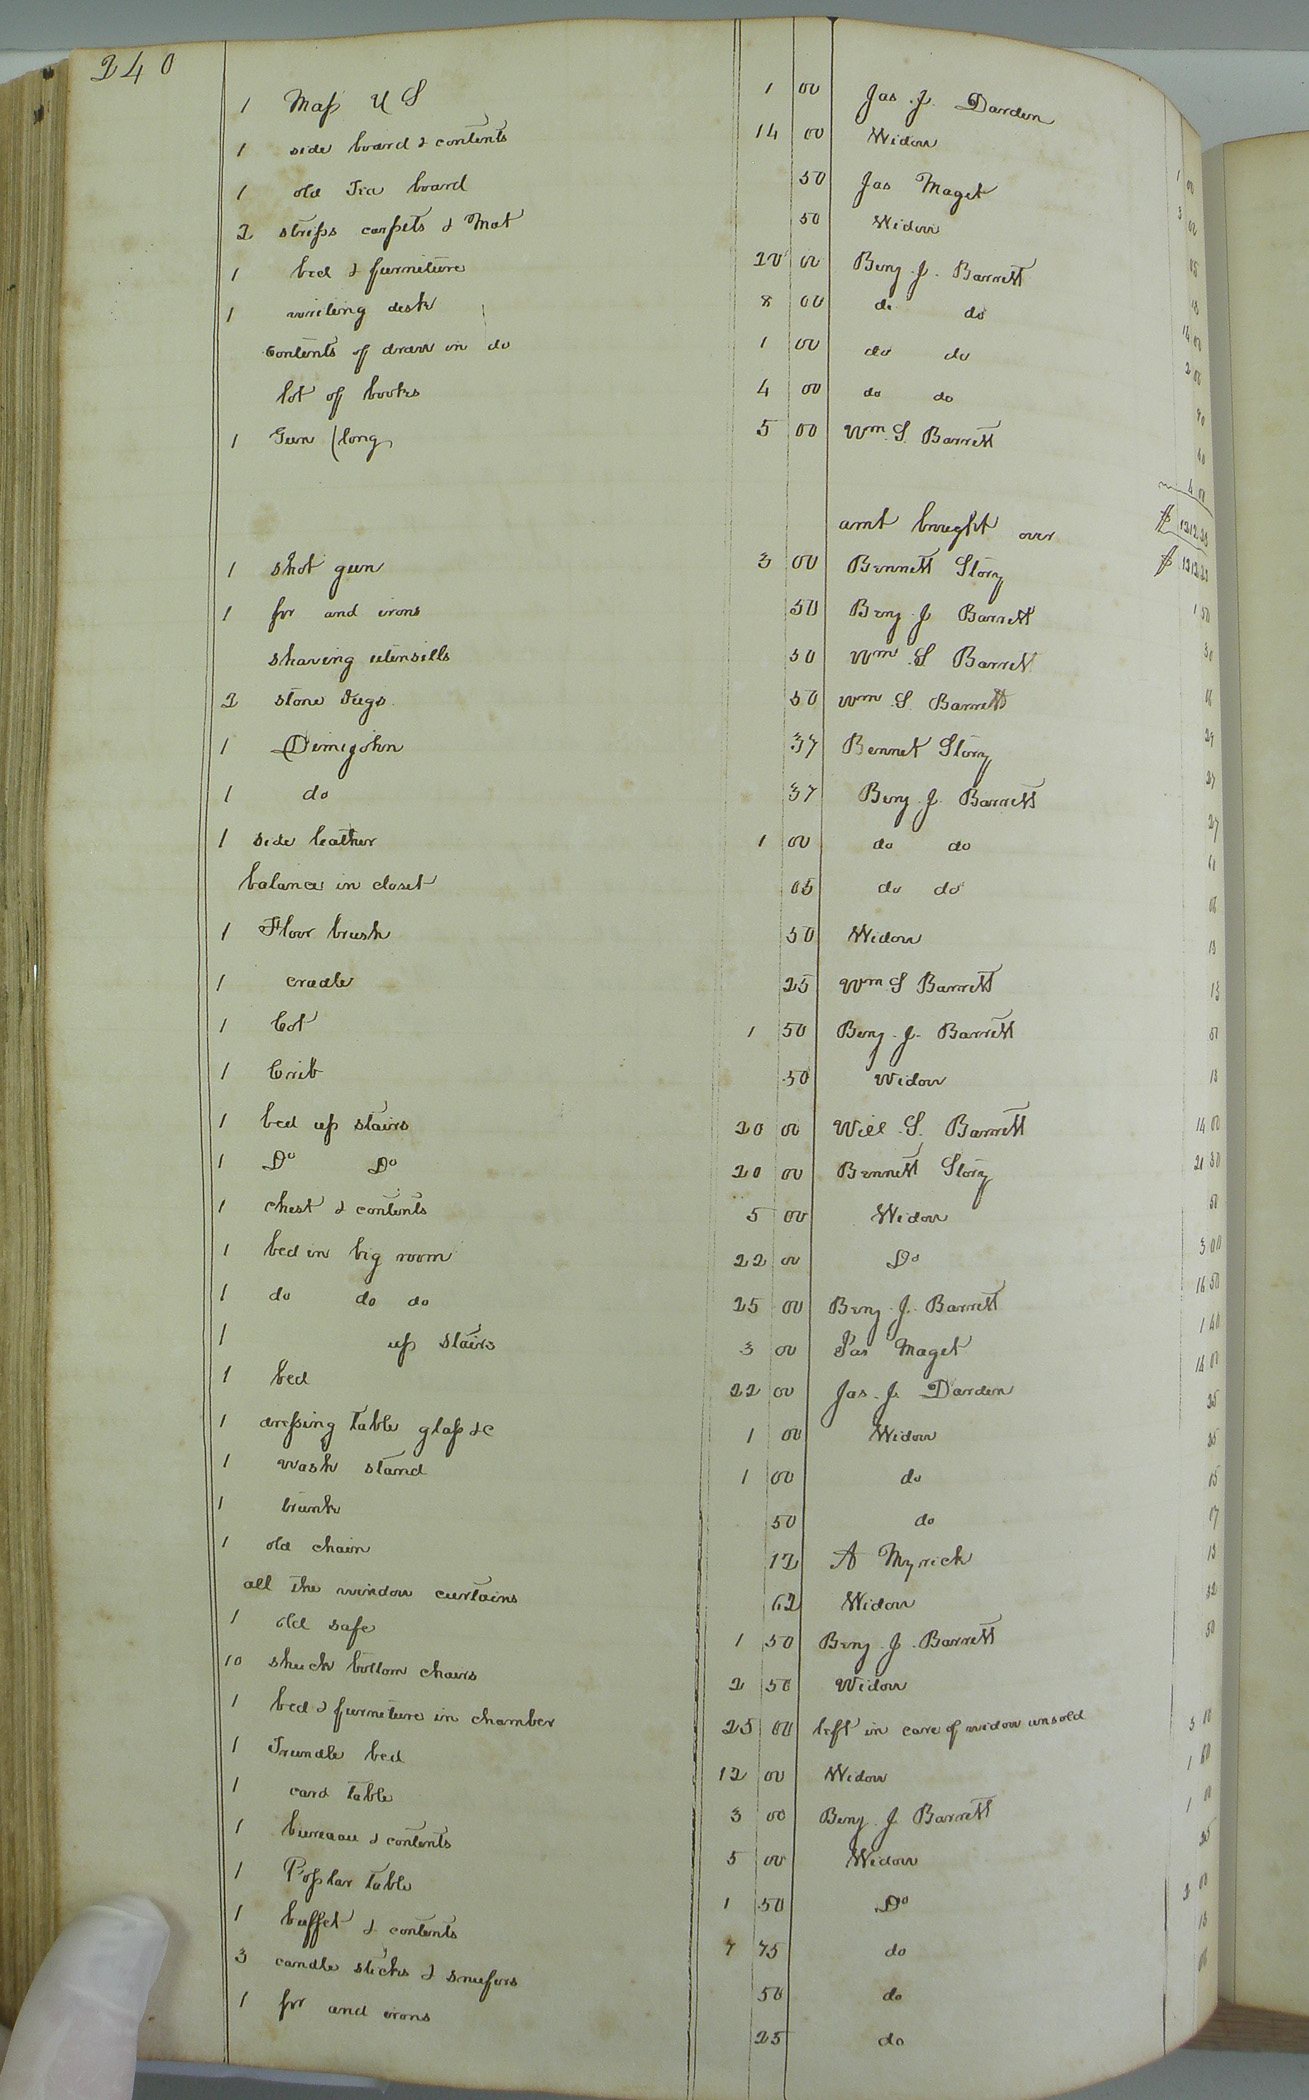 240
1 Map U S 1 00 Jas. J. Darden
1 side board & contents 14 00 Widow
1 old Tea board 50 Jas Maget
2 strips carpets & Mat 50 Widow
1 bed & furniture 20 00 Benj. J. Barrett
1 writing desk 8 00 do do
Contents of draw in do 1 00 do do
lot of books 4 00 do do
1 Gun (long 5 00 Wm. S. Barrett
amt brought over
1 shot gun 3 00 Bennett Story
1 pr and irons 50 Benj. J Barrett
shaving utensills 50 Wm S Barret
2 stone Jugs 50 Wm. S. Barrett
1 Demijohn 37 Bennet Story
1 do 37 Benj. J. Barrett
1 side leather 1 00 do do
balance in closet 05 do do
1 Floor brush 50 Widow
1 cradle 25 Wm. S Barrett
1 Cot 1 50 Benj. J. Barrett
1 Crib 50 Widow
1 bed up stairs 20 00 Will. S. Barrett
1 Do Do 20 00 Bennett Story
1 chest & contents 5 00 Widow
1 bed in big room 22 00 Do
1 do do do 25 00 Benj. J. Barrett
1 up stairs 3 00 Jas Maget
1 bed 22 00 Jas. J. Darden
1 dressing table glass &c 1 00 Widow
1 wash stand 1 00 do
1 trunk 50 do
1 old chair 12 A Myrick
all the window curtains 62 Widow
1 old safe 1 50 Benj. J. Barrett
10 shuck bottom chairs 2 50 Widow
1 bed & furniture in chamber 25 00 left in care of widow unsold
1 Trundle bed 12 00 Widow
1 card table 3 00 Benj. J Barrett
1 bureaau & contents 5 00 Widow
1 Poplar table 1 50 Do
1 buffet & contents 7 75 do
3 candle sticks & snufers 50 do
1 pr and irons 25 do